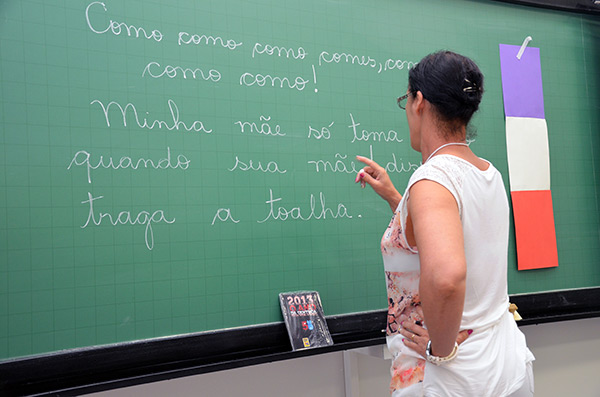 Como como como comes, como
como como!
Minha mãe só toma
quando sua mãe dis
traga a toalha.
2013